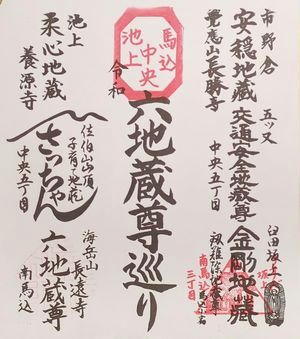 馬込
中央
池上
令和
六地蔵尊巡り
市野倉
安穏地蔵
覺應山長勝寺
五ツ又
交通安全地蔵尊
中央五丁目
臼田坂上
金剛地蔵
南馬込
三丁目
池上
柔心地蔵
養源寺
佐伯山山頂
子育て地蔵
さっちゃん
中央五丁目
海岳山
長遠寺
六地蔵尊
南馬込